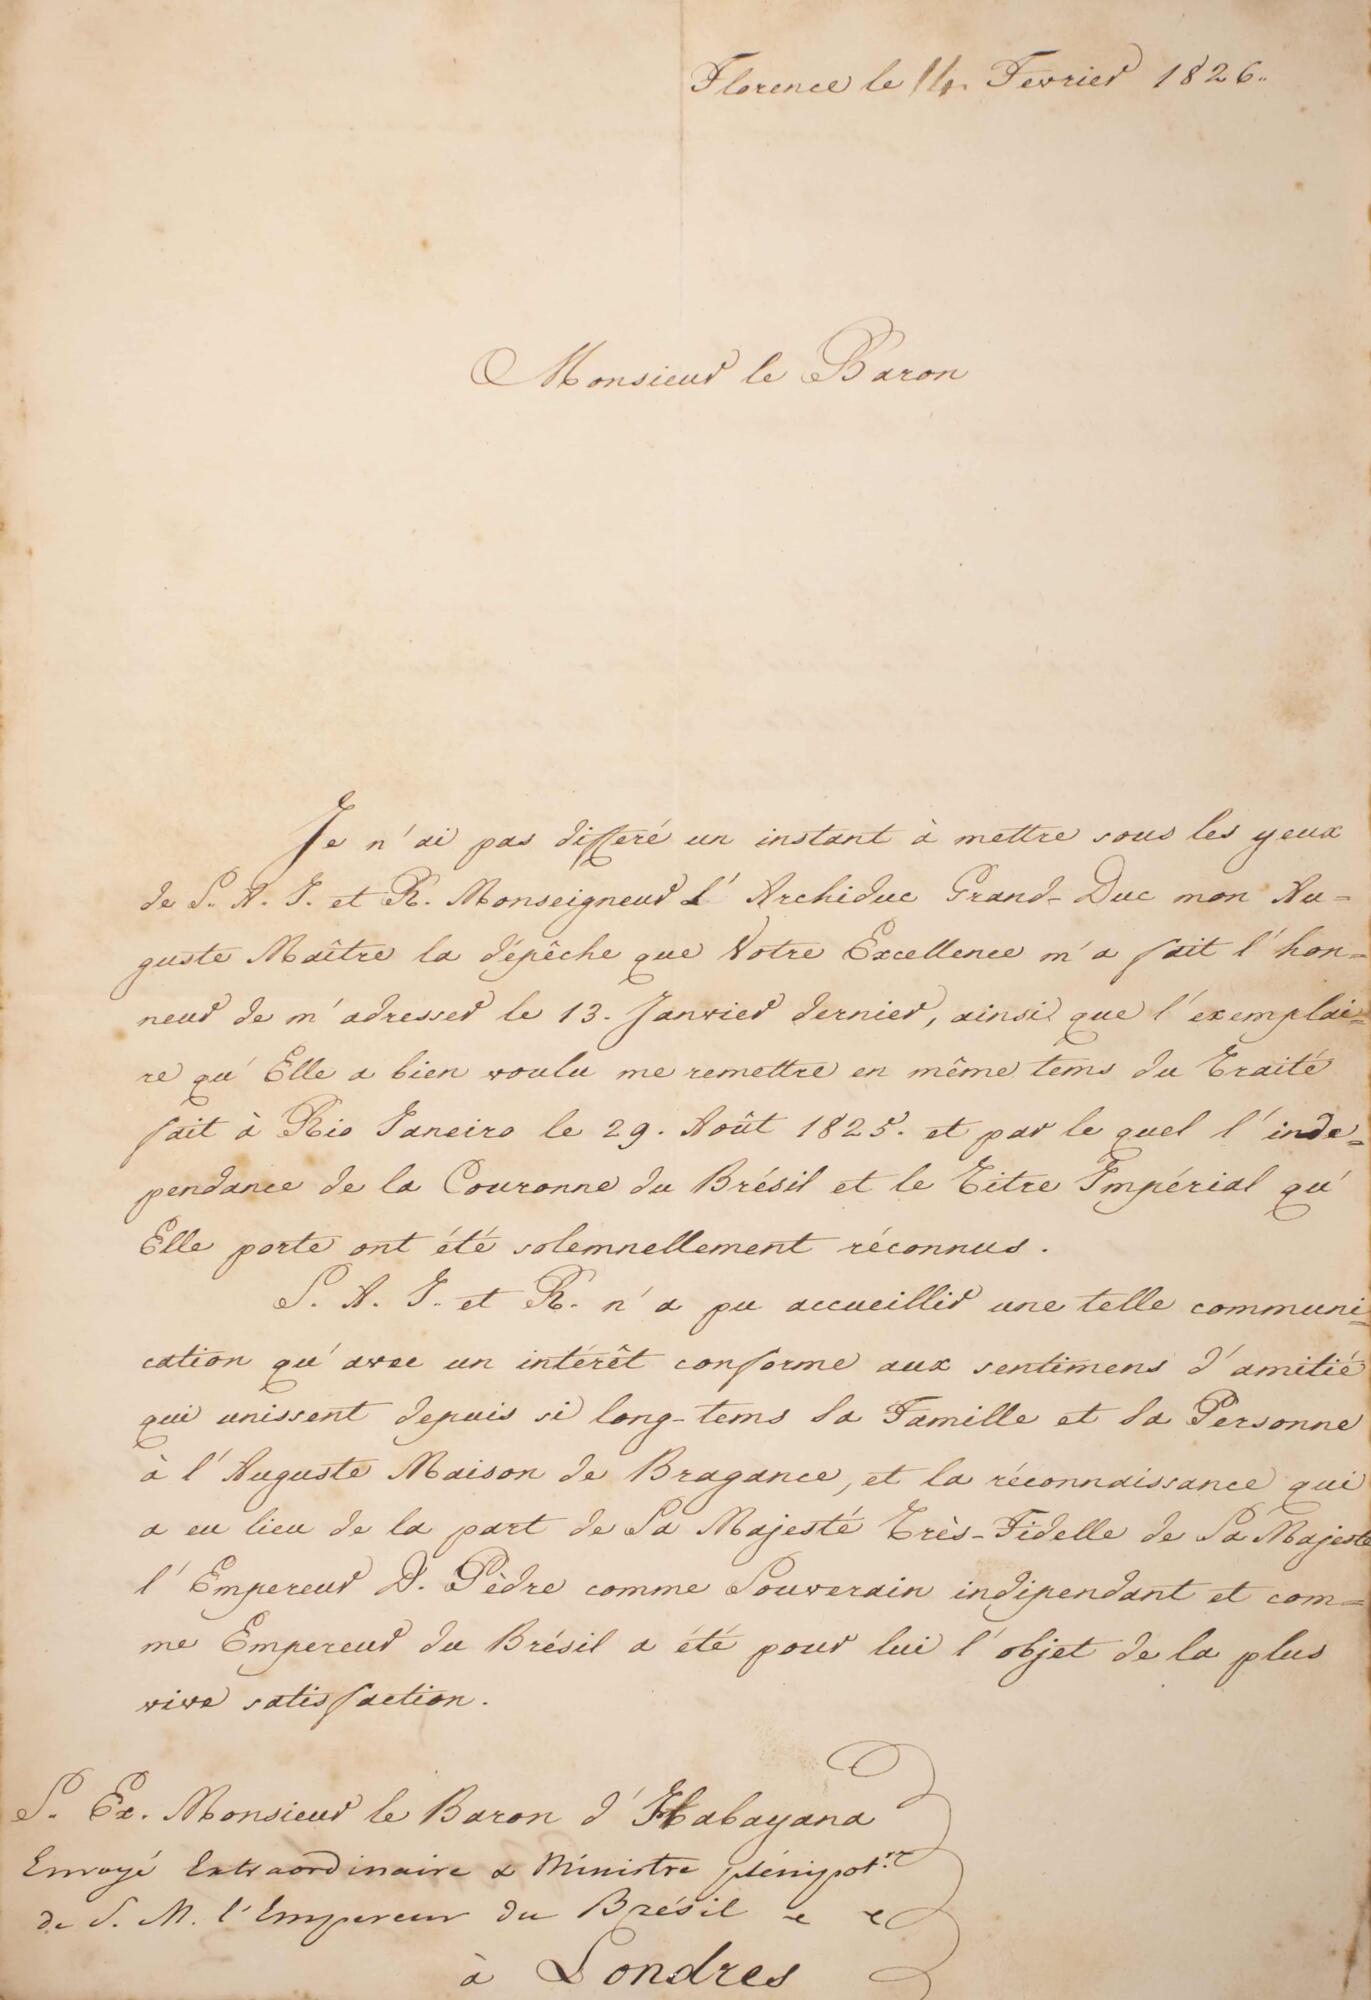 Florence le 14. Fevrier 1826..
Monsieur le Baron
Je n'ai pas differé un instant à mettre sous les yeux
de S. A. I. et R. Monseigneur l'Archiduc Grand-Duc mon Au=
guste Maître la dépêche que Votre Excellence m'a fait l'hon=
neur de m'adresser le 13. Janvier dernier, ainsi que l'exemplai=
re qu'Elle a bien voulu me remettre en même tems du Traité
fait à Rio Janeiro le 29. Août 1825. et par le quel l'inde=
pendance de la Couronne du Brésil et le Titre Impérial qu'
Elle porte ont été solemnellement réconnus.
S. A. I. et R. n'a pu accueillir une telle communi=
cation qu'avec un intérêt conforme aux sentimens d'amitié
qui unissent depuis si long-tems Sa Famille et Sa Personne
à l'Auguste Maison de Bragance, et la réconnaissance qui
a eu lieu de la part de Sa Majesté Très-Fidelle de Sa Majesté
l'Empereur D. Pèdre comme Souverain indipendant et com=
me Empereur du Brésil a été pour lui l'objet de la plus
vive satisfaction.
S. Ex. Monsieur le Baron d'Habayana
Envoyé Extraordinaire & Ministre plénipot.re
de S. M. l'Empereur du Brésil
à Londres